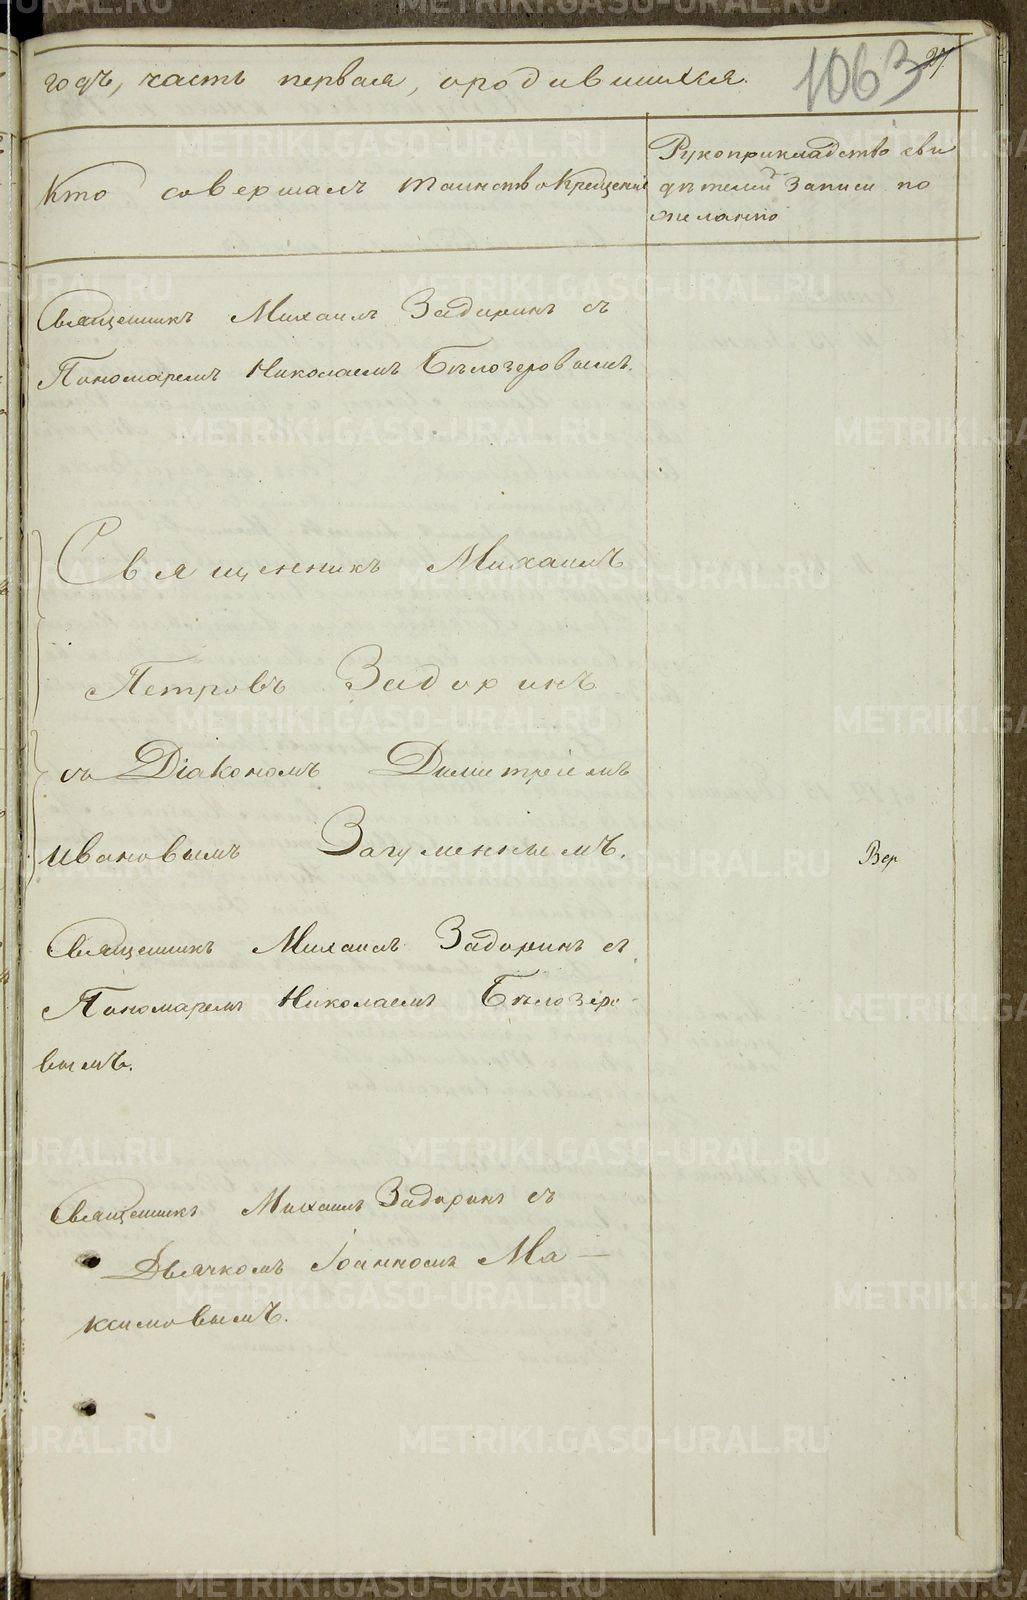 годъ, часть первая, о родившихся.
1063
27
Кто совершалъ таинство Крещенія
Рукоприкладство сви
дѣтелей записи по
желанію
Священникъ Михаилъ Задоринъ съ
Пономаремъ Николаемъ Бѣлозеровымъ.
Священникъ Михаилъ
Петровъ Задоринъ
съ Діакономъ Димитріемъ
Ивановымъ Загуменнымъ.
Вер
Священникъ Михаилъ Задоринъ съ
Пономаремъ Николаемъ Бѣлозеро-
вымъ.
Священникъ Михаилъ Задоринъ съ
Дьячкомъ Іоанномъ Ма-
ксимовымъ.
METRIKI.GASO-URAL.RU